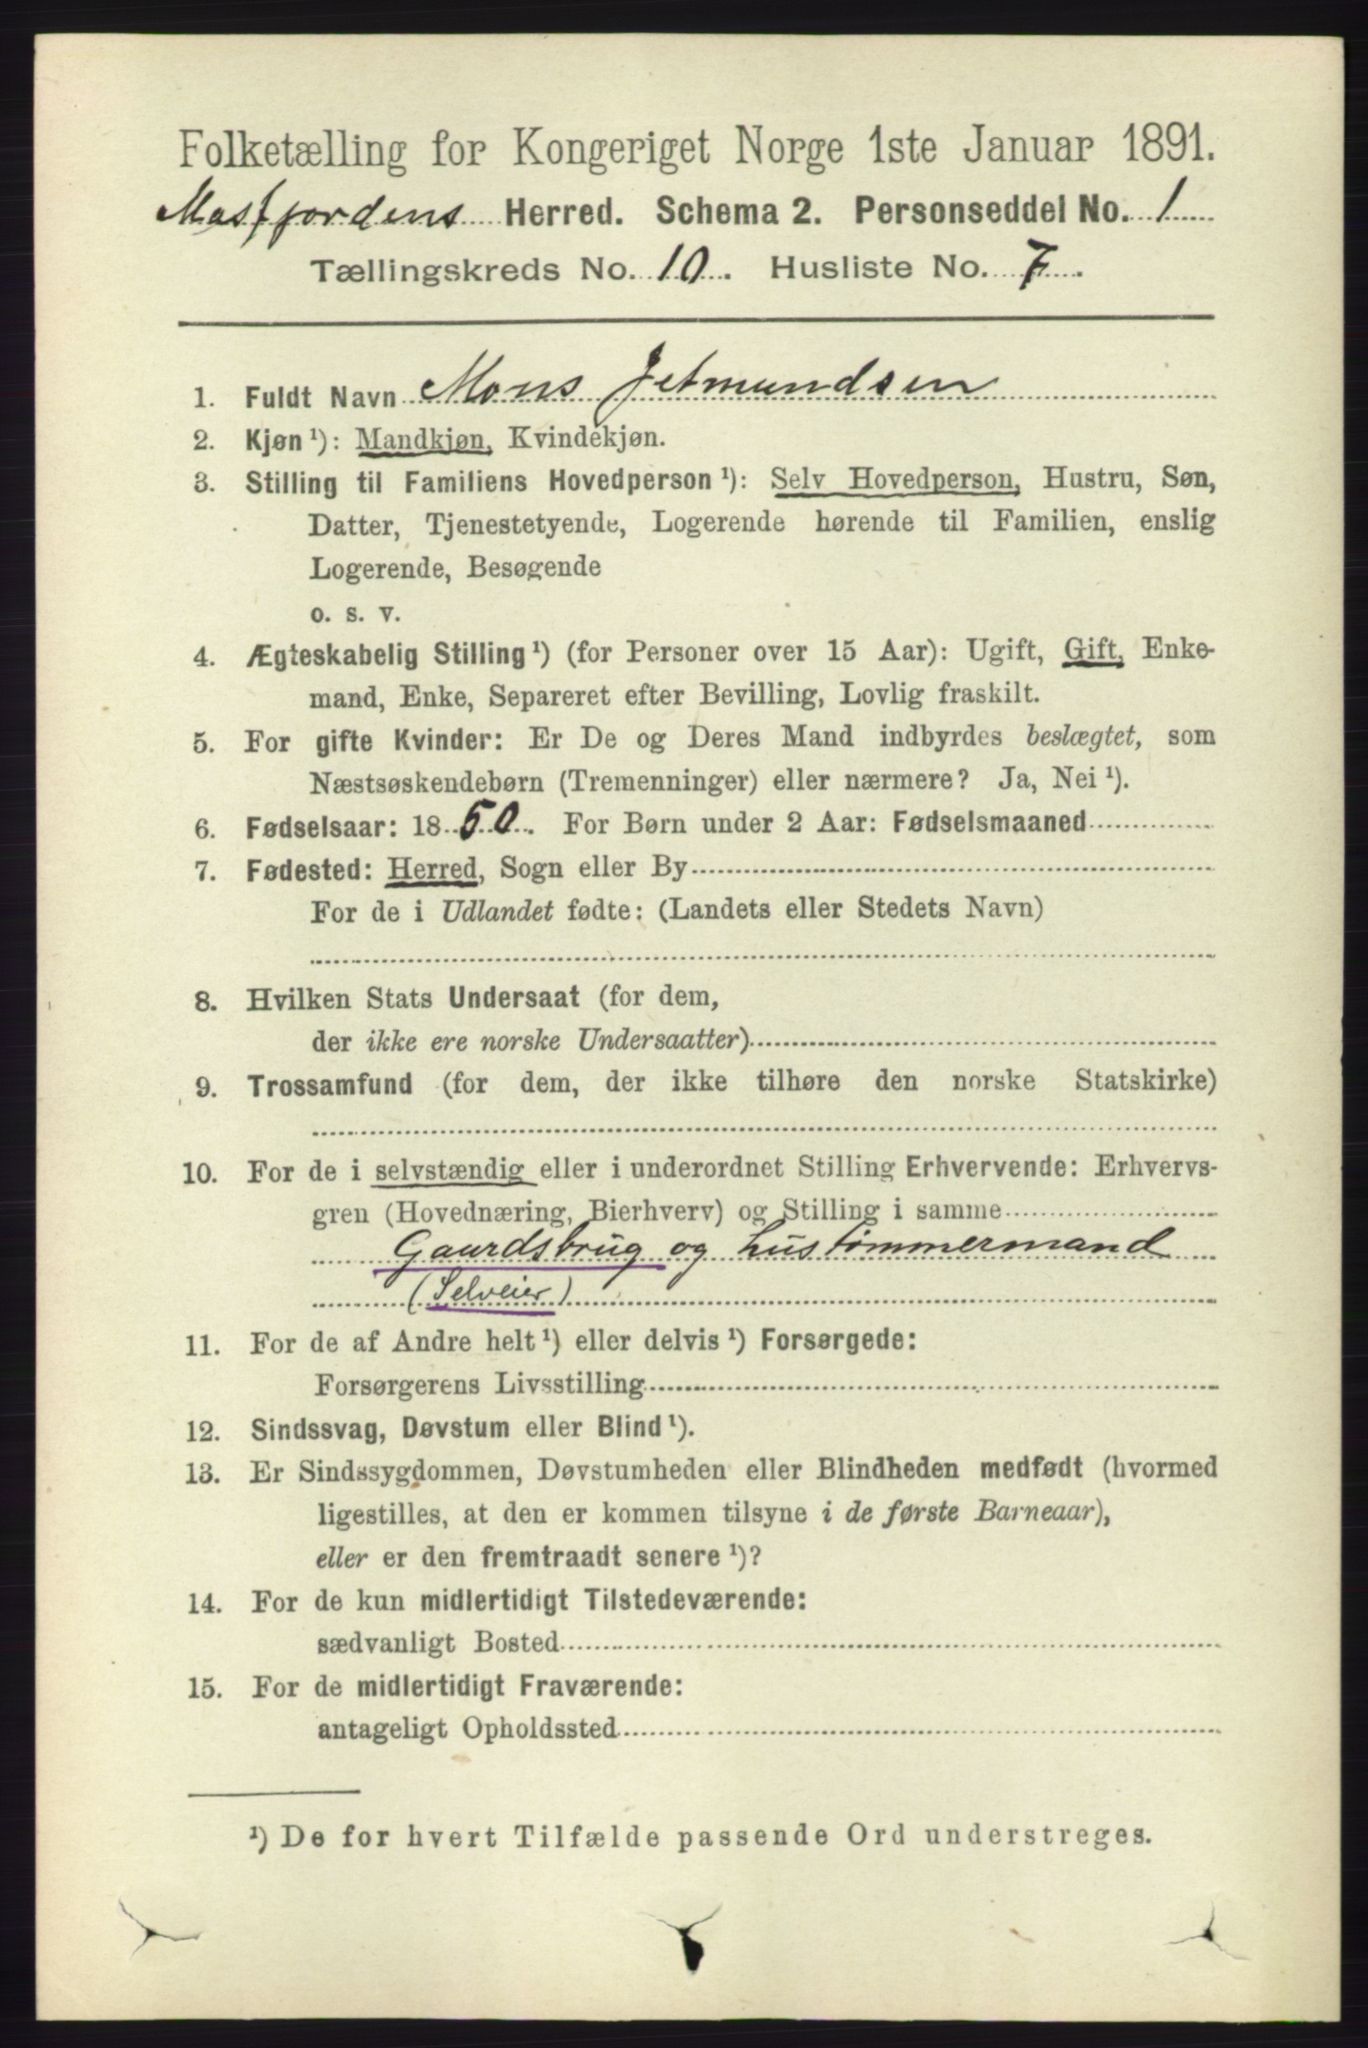 Folketælling for Kongeriget Norge 1ste Januar 1891.
Masfjordens Herred. Schema 2. Personseddel No. 1
Tællingskreds No. 10. Husliste No. 7.
1. Fuldt Navn Mons Jetmundsen
2. Kjøn ¹): Mandkjøn, Kvindekjøn.
3. Stilling til Familiens Hovedperson ¹): Selv Hovedperson, Hustru, Søn,
Datter, Tjenestetyende, Logerende hørende til Familien, enslig
Logerende, Besøgende
o. s. v.
4. Ægteskabelig Stilling ¹) (for Personer over 15 Aar): Ugift, Gift, Enke-
mand, Enke, Separeret efter Bevilling, Lovlig fraskilt.
5. For gifte Kvinder: Er De og Deres Mand indbyrdes beslægtet, som
Næstsøskendebørn (Tremenninger) eller nærmere? Ja, Nei ¹).
6. Fødselsaar: 1850. For Børn under 2 Aar: Fødselsmaaned
7. Fødested: Herred, Sogn eller By
For de i Udlandet fødte: (Landets eller Stedets Navn)
8. Hvilken Stats Undersaat (for dem,
der ikke ere norske Undersaatter)
9. Trossamfund (for dem, der ikke tilhøre den norske Statskirke)
10. For de i selvstændig eller i underordnet Stilling Erhvervende: Erhvervs-
gren (Hovednæring, Bierhverv) og Stilling i samme
Gaardsbrug og Hustømmermand
(Selveier)
11. For de af Andre helt ¹) eller delvis ¹) Forsørgede:
Forsørgerens Livsstilling
12. Sindssvag, Døvstum eller Blind ¹).
13. Er Sindssygdommen, Døvstumheden eller Blindheden medfødt (hvormed
ligestilles, at den er kommen tilsyne i de første Barneaar),
eller er den fremtraadt senere ¹)?
14. For de kun midlertidigt Tilstedeværende:
sædvanligt Bosted
15. For de midlertidigt Fraværende:
antageligt Opholdssted
¹) De for hvert Tilfælde passende Ord understreges.